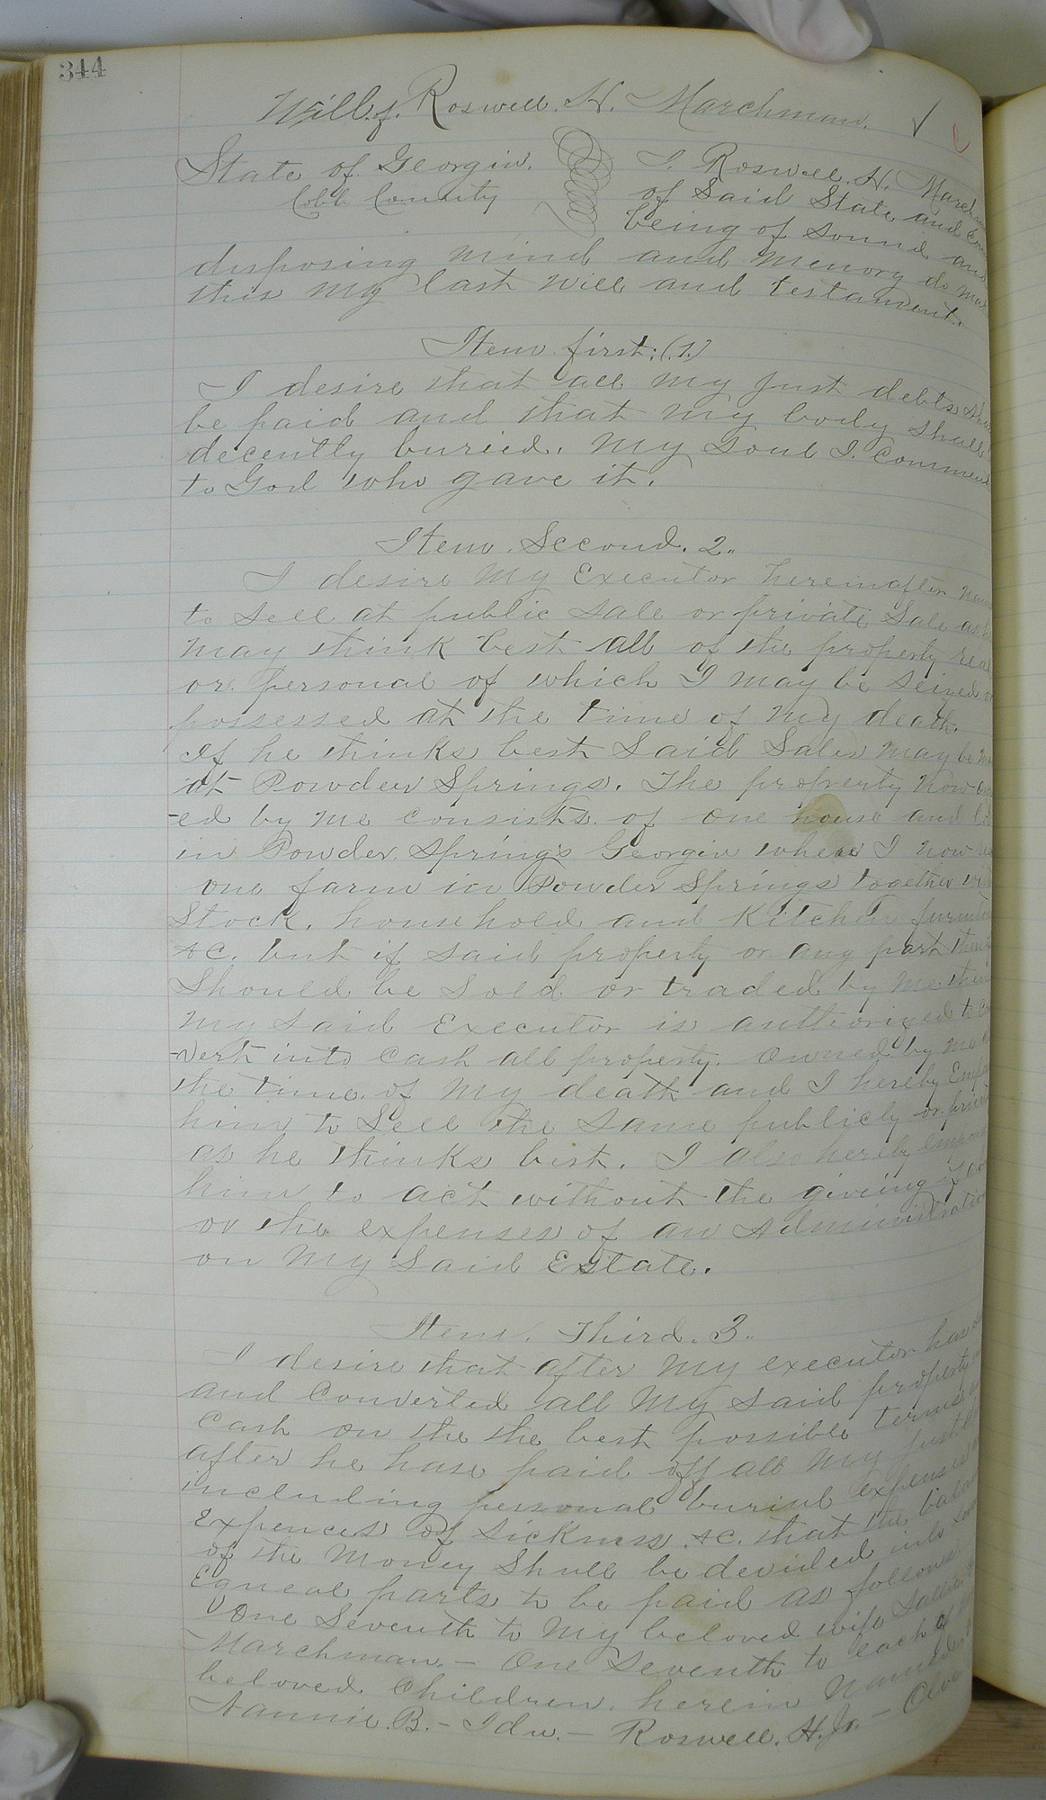 344
Will of Roswell. H. Marchman.
State of Georgia. I Roswell. H.
Cobb County of Said State and
being of Sound and
disposing mind and memory do
this my last will and testament.
Item first: (1.)
I desire that all my just debts
be paid and that my body shall
decently buried. My Soul I. Commend
to God who gave it.
Item. Second. 2.
I desire my Executor hereinafter
to sell at public sale or private Sale as
may think best all of the property real
or. personal of which I may be seized
possessed at the time of my death.
If he thinks best Said Sales may be
at Powder Springs. The property now
-ed by me consists. of one house and
in Powder Springs Georgia where I now
one farm in Powder Springs together
Stock. household and Kitchen
&C. but if said property or any part
Should be Sold or traded by me
my said Executor is authorized to
-vert into Cash all property. Owned by me
the time. of my death and I hereby
him to Sell the same publicly or
as he thinks best. I also hereby
him to act without the giveing of
or the expenses of an Administration
on my said Estate.
Item. Third. 3.
I desire that after my executor has
and Converted all my said property
Cash on the the best possible terms
after he hase paid off all my just
including personal burial expenses
Expences of sickness &C. that the
of the money Shall be devided into
Equeal parts to be paid as follows
One Seventh to my beloved wife
Marchman. - One Seventh to each of
beloved Children. herein named
Nannie. B. - Ida. - Roswell. H. Jr. -